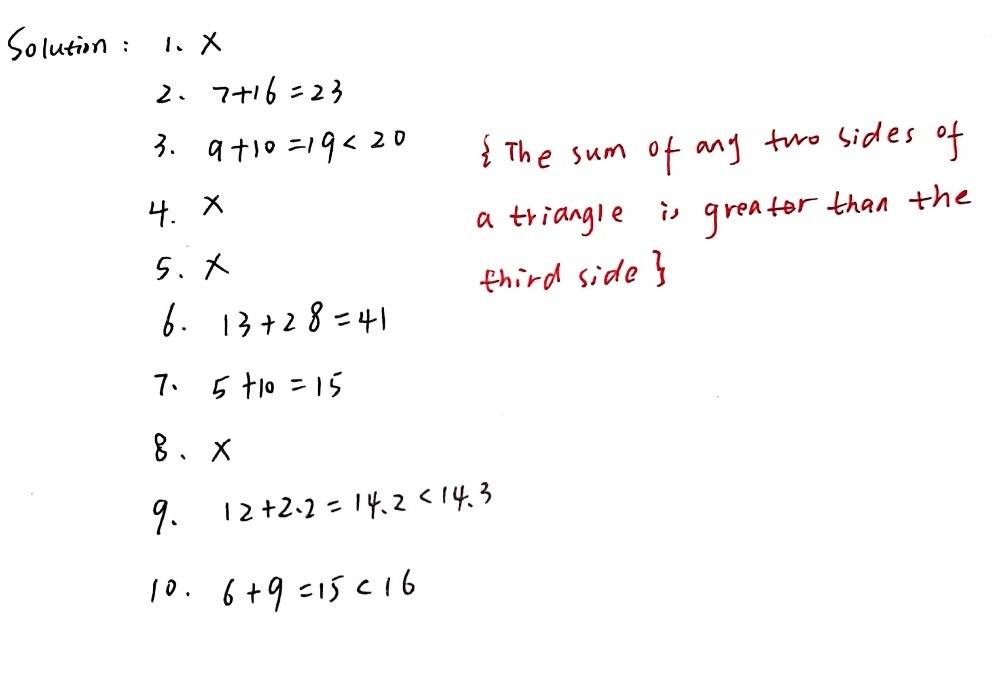 Solution : 1. X
2. 7+16 = 23
3. 9+10 = 19 < 20
{ The sum of any two sides of
a triangle is greater than the
third side }
4. X
5. X
6. 13 + 28 = 41
7. 5 + 10 = 15
8. X
9. 12 + 2.2 = 14.2 < 14.3
10. 6 + 9 = 15 < 16